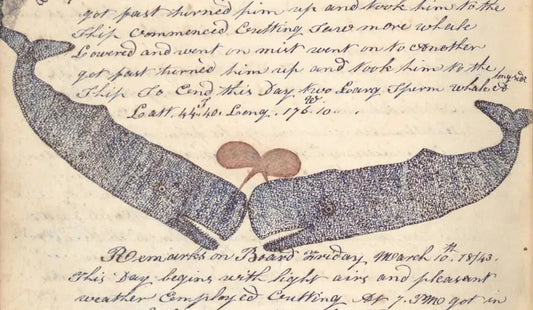 got fast turned him up and took him to the
Ship Commenced Cutting Saw more whale
Lowered and went on mist went on to another
got fast turned him up and took him to the
Ship To End this Day two Large Sperm whales
Latt. 44.40. Long. 176.10
Remarks on Board Friday, March 10th. 1843.
This Day begins with light airs and pleasant
weather Employed Cutting At 7. PM got in